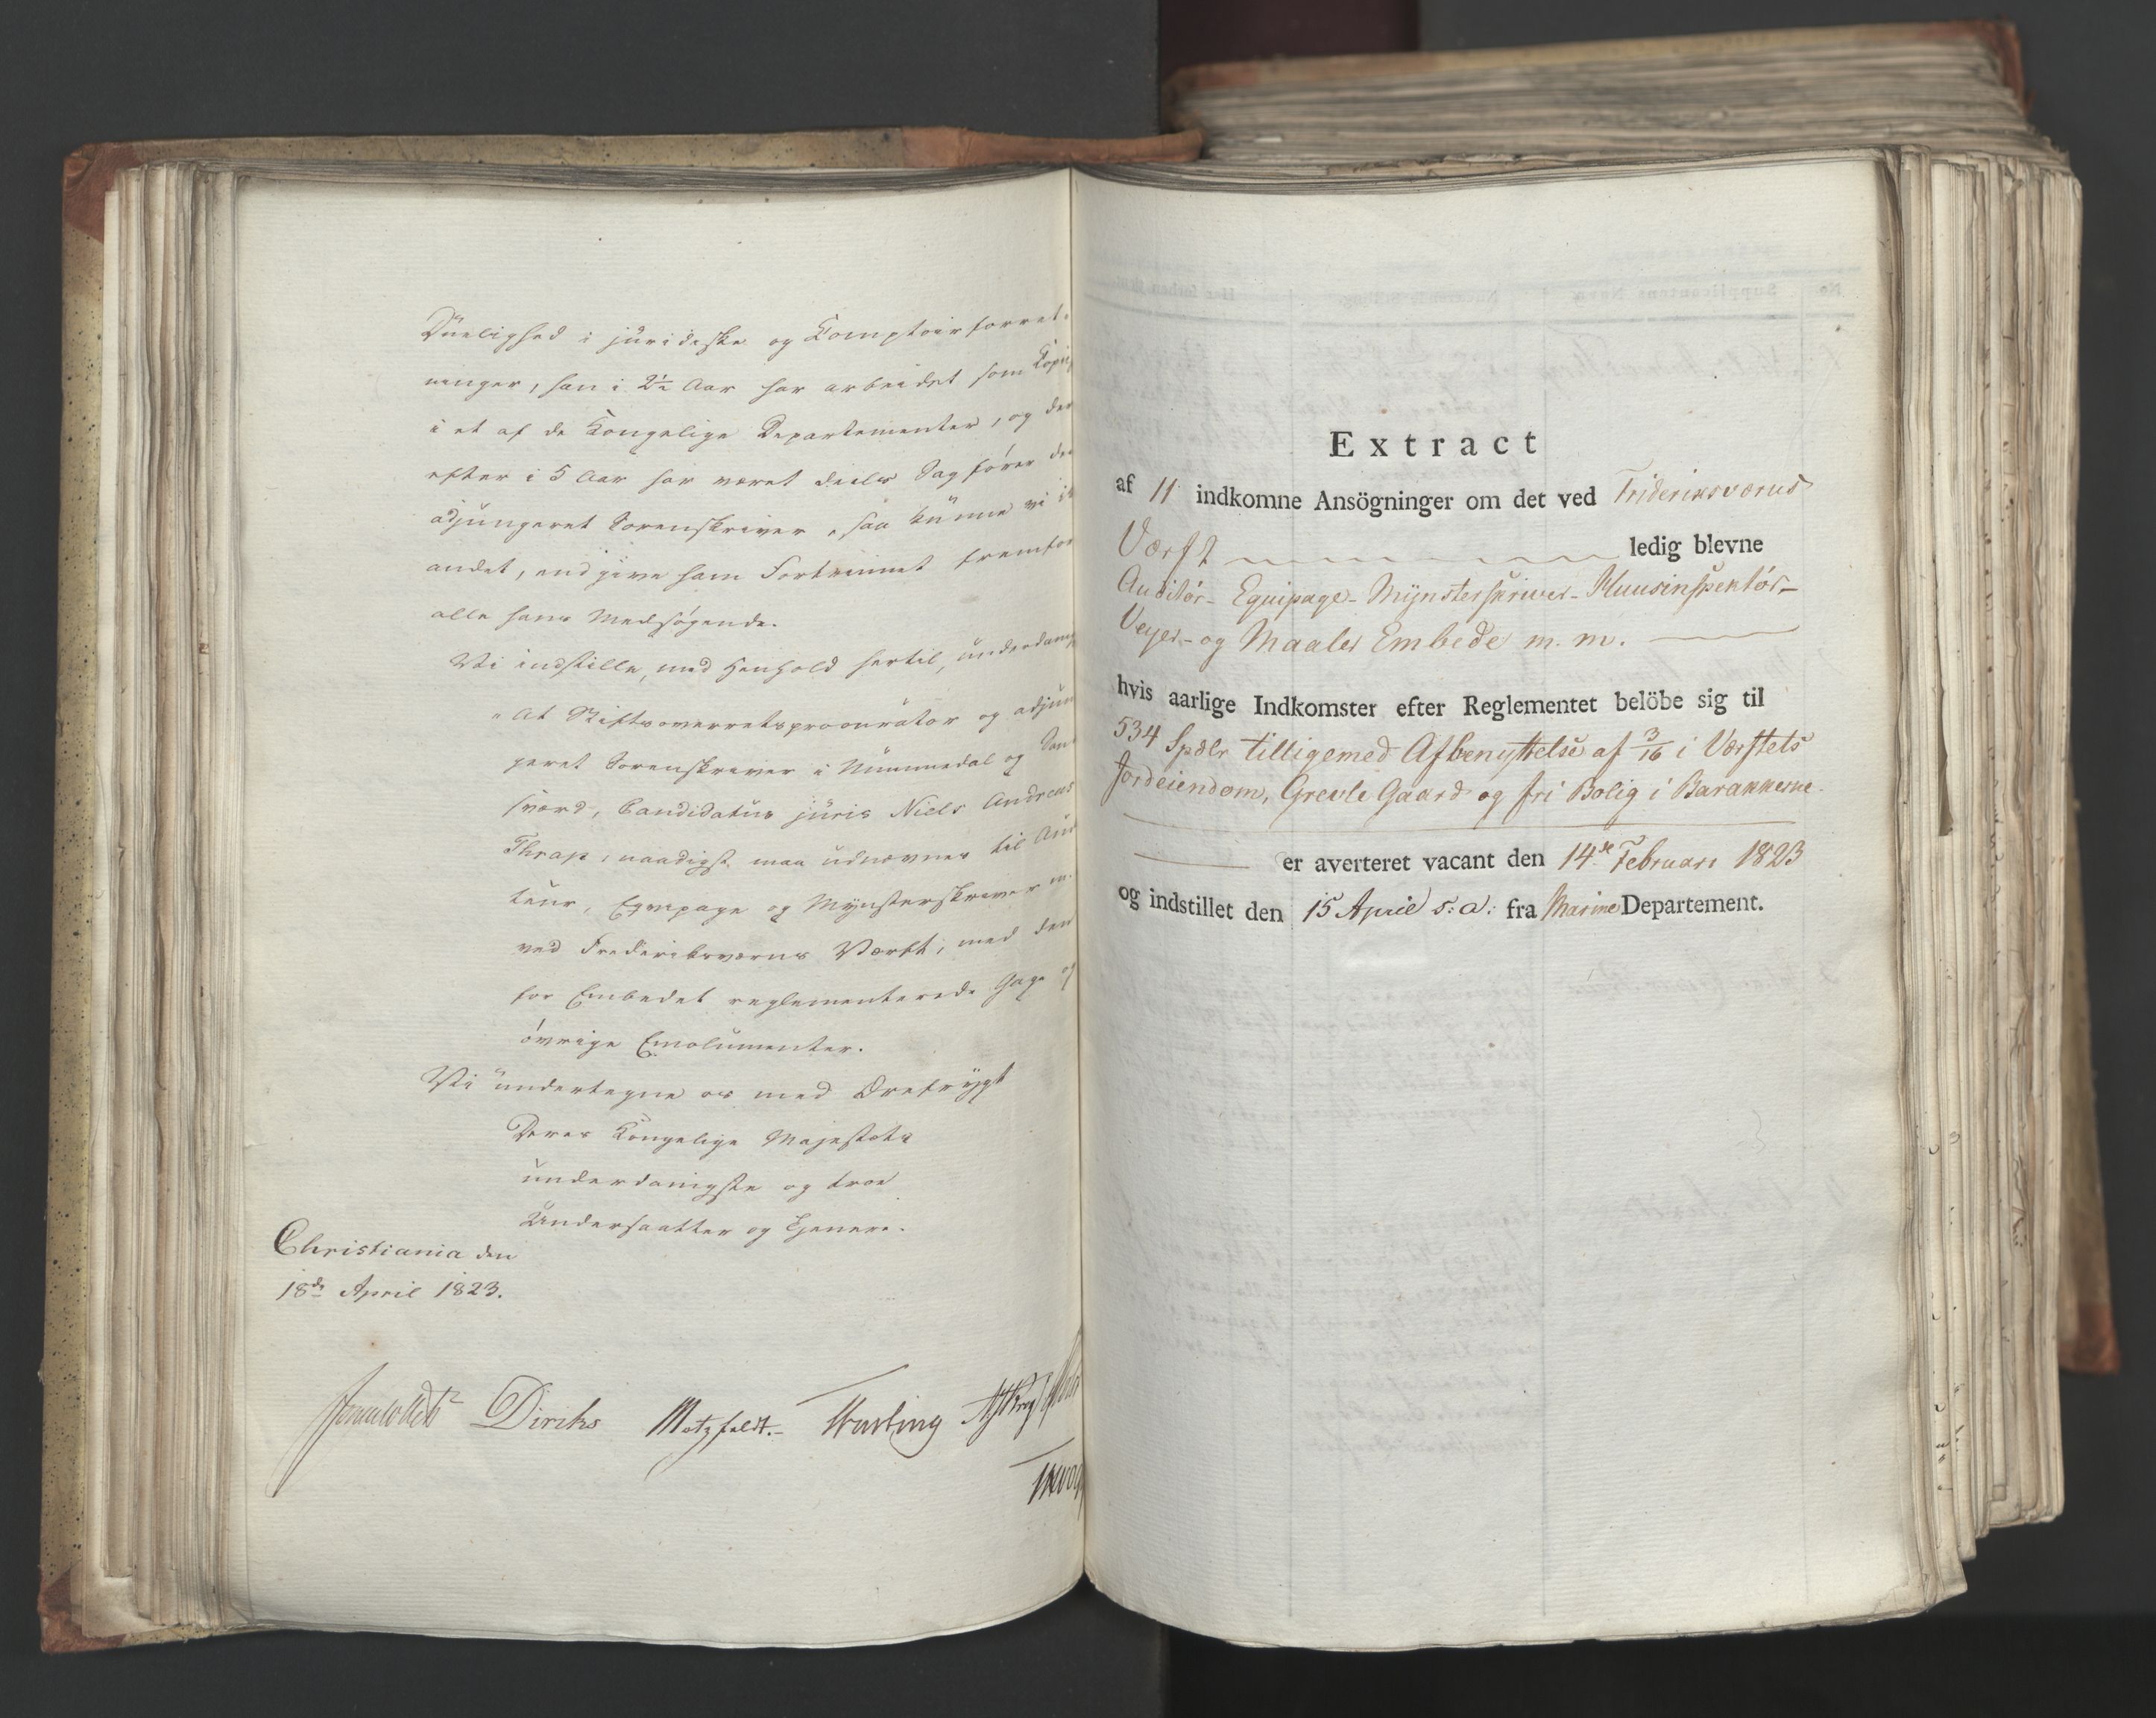 Duelighed i juridiske og Comptoirforret-
ninger, han i 2½ Aar har arbeidet som Copi
i et af de Kongelige Departementer, og der
efter i 5 Aar har været deels Sagfører de
adjungeret Sorenskriver, saa kunne vi
andet, end give ham Fortrinnet fremfor
alle hans Medsøgende.
Vi indstille, med Henhold hertil, underdan
"At Stiftsoverretsprocurator og adjun
geret Sorenskriver i Nummedal og San
sværd, Candidatus juris Niels Andreas
Thrap, naadigst maa udnævnes til Aud
teur, Eqvipage og Mynsterskriver m.
ved Frederiksværns Værft, med den
for Embedet reglementerede Gage og
øvrige Emolumenter.
Vi undertegne os med Ærefrygt
Deres Kongelige Majestæts
underdanigste og troe
Undersaatter og Tjenere.
Christiania den
18de April 1823.
Diriks Motzfeldt.
Extract
af 11 indkomne Ansögninger om det ved Frideriksværns
Værft ledig blevne
Auditör- Equipage- Mynsterskriver- Huusinspektör-
Veyer- og Maaler Embede m. m.
hvis aarlige Indkomster efter Reglementet belöbe sig til
534 Spdlr tilligemed Afbenyttelse af 3/16 i Værftets
Jordeiendom, Grevle Gaard og fri Bolig i Barakkerne.
er averteret vacant den 14de Februari 1823
og indstillet den 15 April s: a: fra Marine Departement.